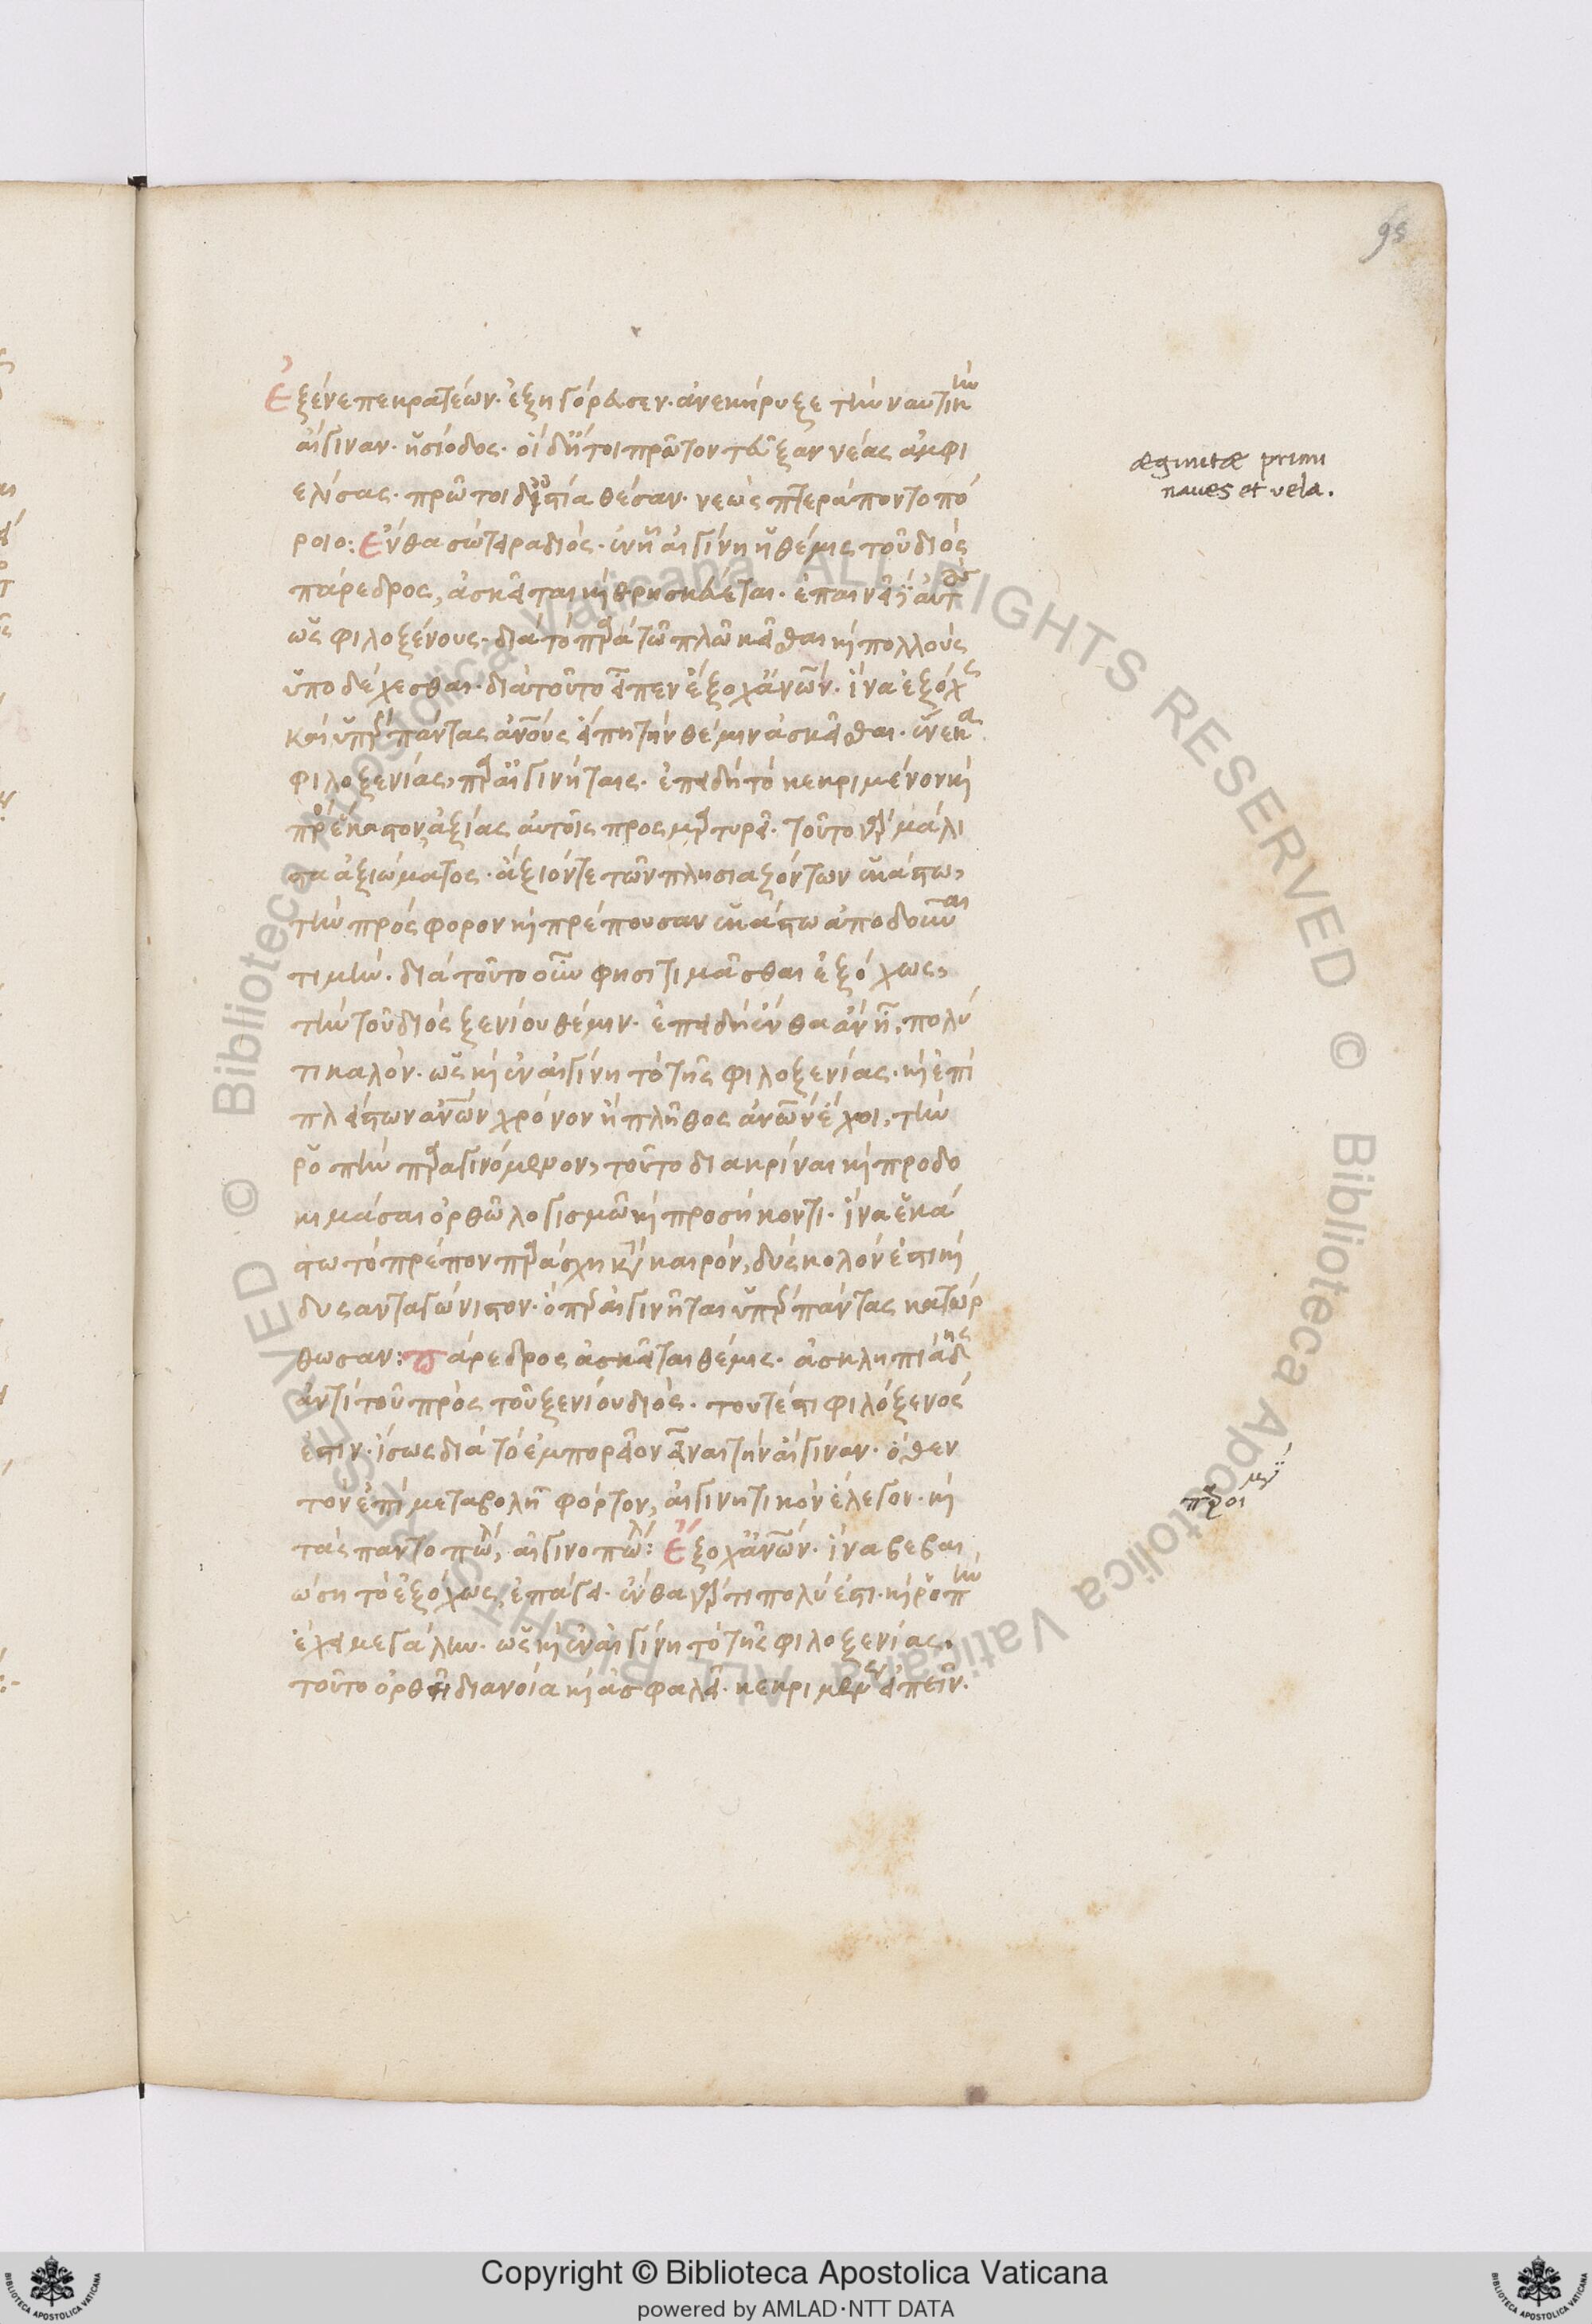 95
Ἐξένεπε κρατέων. ἐξηγόρευσεν. ἀνεκήρυξε τὴν ναυτικὴν
αἴγιναν. ἡσίοδος. οἱ δή τοι πρῶτον τεῦξαν νέας ἀμφι
ελίσας. πρῶτοι δ' ἱστία θέσαν. νεὼς πτερὰ ποντοπό
ροιο: Ἔνθα σώτειρα διός. ἐν ᾗ αἰγίνῃ ἡ θέμις τοῦ διὸς
πάρεδρος, ἀσκεῖται καὶ θρησκεύεται. ἐπαινεῖ δὲ αὐτοὺς
ὡς φιλοξένους. διὰ τὸ παρὰ τῷ πλῷ κεῖσθαι καὶ πολλοὺς
ὑποδέχεσθαι. διὰ τοῦτο εἶπεν ἔξοχ' ἀνθρώπων. ἵνα ἐξόχως
καὶ ὑπὲρ πάντας ἀνθρώπους εἴπῃ τὴν θέμιν ἀσκεῖσθαι. ἕνεκα
φιλοξενίας, παρ' αἰγινήταις. ἐπειδὴ τὸ κεκριμένον καὶ
πρὸς ἕκαστον ἀξίας αὐτοῖς προσμαρτυρεῖ. τοῦτο γὰρ μάλι
στα ἀξιώματος. ἀξιόν τε τῶν πλησιαζόντων ἑκάστω,
τὴν πρόσφορον καὶ πρέπουσαν ἑκάστω ἀποδοῦναι
τιμήν. διὰ τοῦτο οὖν φησι τιμᾶσθαι ἐξόχως,
τὴν τοῦ διὸς ξενίου θέμιν. ἐπειδὴ ἔνθα ἂν ᾖ, πολύ
τι καλόν. ὡς καὶ ἐν αἰγίνῃ τὸ τῆς φιλοξενίας. καὶ ἐπὶ
πλεῖστων ἀνθρώπων χρόνον ἢ πλῆθος ἀνθρώπων ἔχοι, τὴν
ῥοπὴν παραγινόμενον, τοῦτο διακρίναι καὶ προδο
κιμάσαι ὀρθῷ λογισμῷ καὶ προσήκοντι. ἵνα ἑκά
στω τὸ πρέπον παράσχῃ κατὰ καιρόν, δύσκολον ἐστι καὶ
δυσανταγώνιστον. ὅπερ αἰγινῆται ὑπὲρ πάντας κατώρ
θωσαν: Πάρεδρος ἀσκεῖται θέμις. ἀσκληπιάδης
ἀντὶ τοῦ πρὸς τοῦ ξενίου διός. τουτέστι φιλόξενός
ἐστιν. ἴσως διὰ τὸ ἐμπορεῖον εἶναι τὴν αἴγιναν. ὅθεν
τὸν ἐπὶ μεταβολῇ φόρτον, αἰγινητικὸν ἔλεγον. καὶ
τὰς παντοπώλ, αἰγινοπώλ: Ἔξοχ' ἀνθρώπων. ἵνα βεβαι
ώσῃ τὸ ἐξόχως, ἐπάγει. ἔνθα γάρ τι πολύ ἐστι. καὶ ῥοπὴν
ἔχει μεγάλην. ὡς καὶ ἐν αἰγίνῃ τὸ τῆς φιλοξενίας,
τοῦτο ὀρθῇ διανοία καὶ ἀσφαλεῖ. κεκριμένον εἰπεῖν.
Æginetæ primi
naues et vela.
Copyright © Biblioteca Apostolica Vaticana
powered by AMLAD·NTT DATA